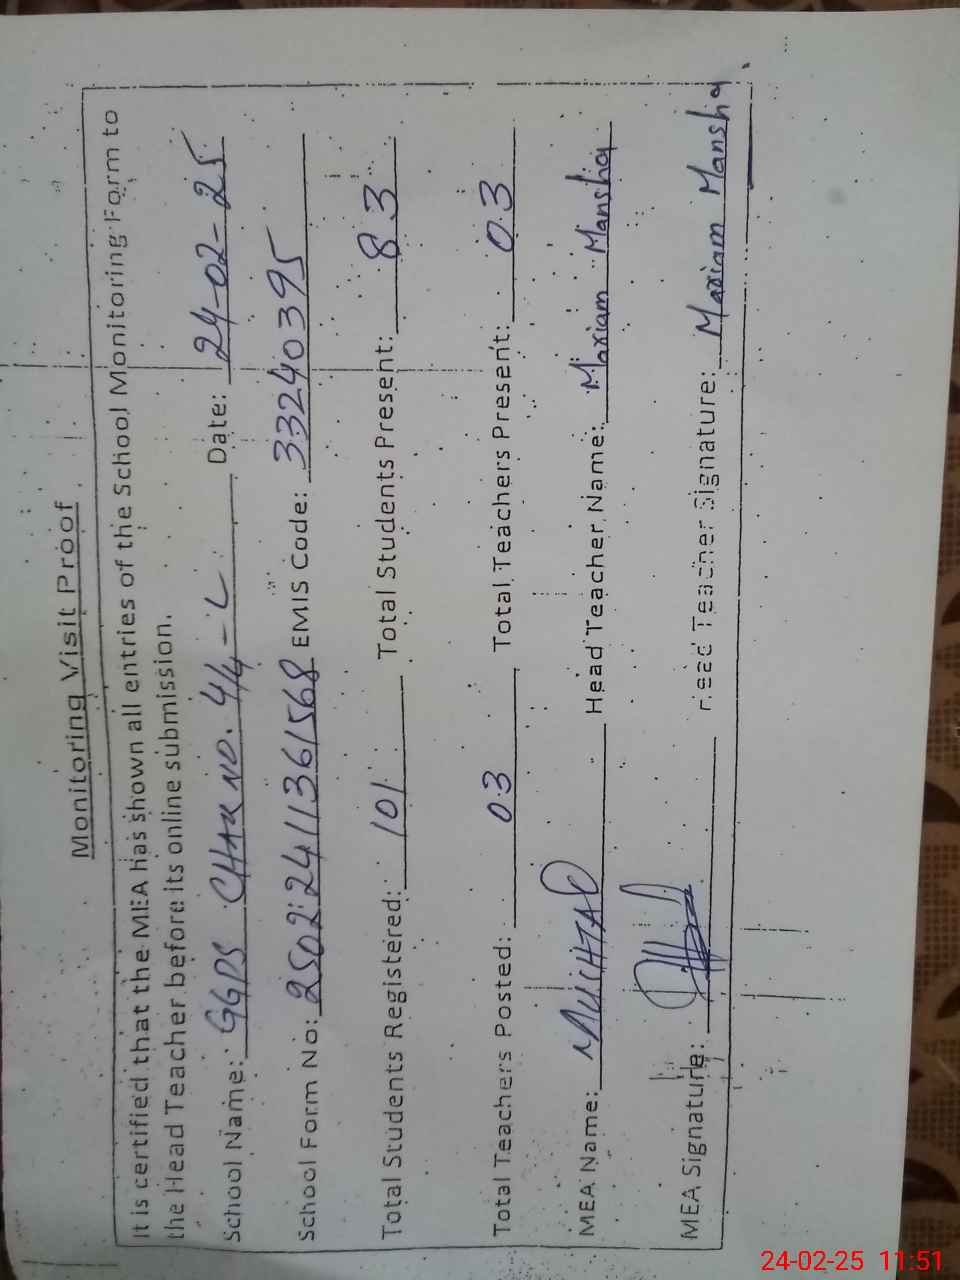 Monitoring Visit Proof
It is certified that the MEA has shown all entries of the School Monitoring Form to
the Head Teacher before its online submission.
School Name: GGPS CHAK NO. 4/4-L Date: 24-02-25
School Form No: 25022411361568 EMIS Code: 33240395
Total Students Registered: 101 Total Students Present: 83
Total Teachers Posted: 03 Total Teachers Present: 03
MEA Name: Head Teacher Name: Mariam Mansha
MEA Signature: Head Teacher Signature: Mariam Mansha
24-02-25 11:51